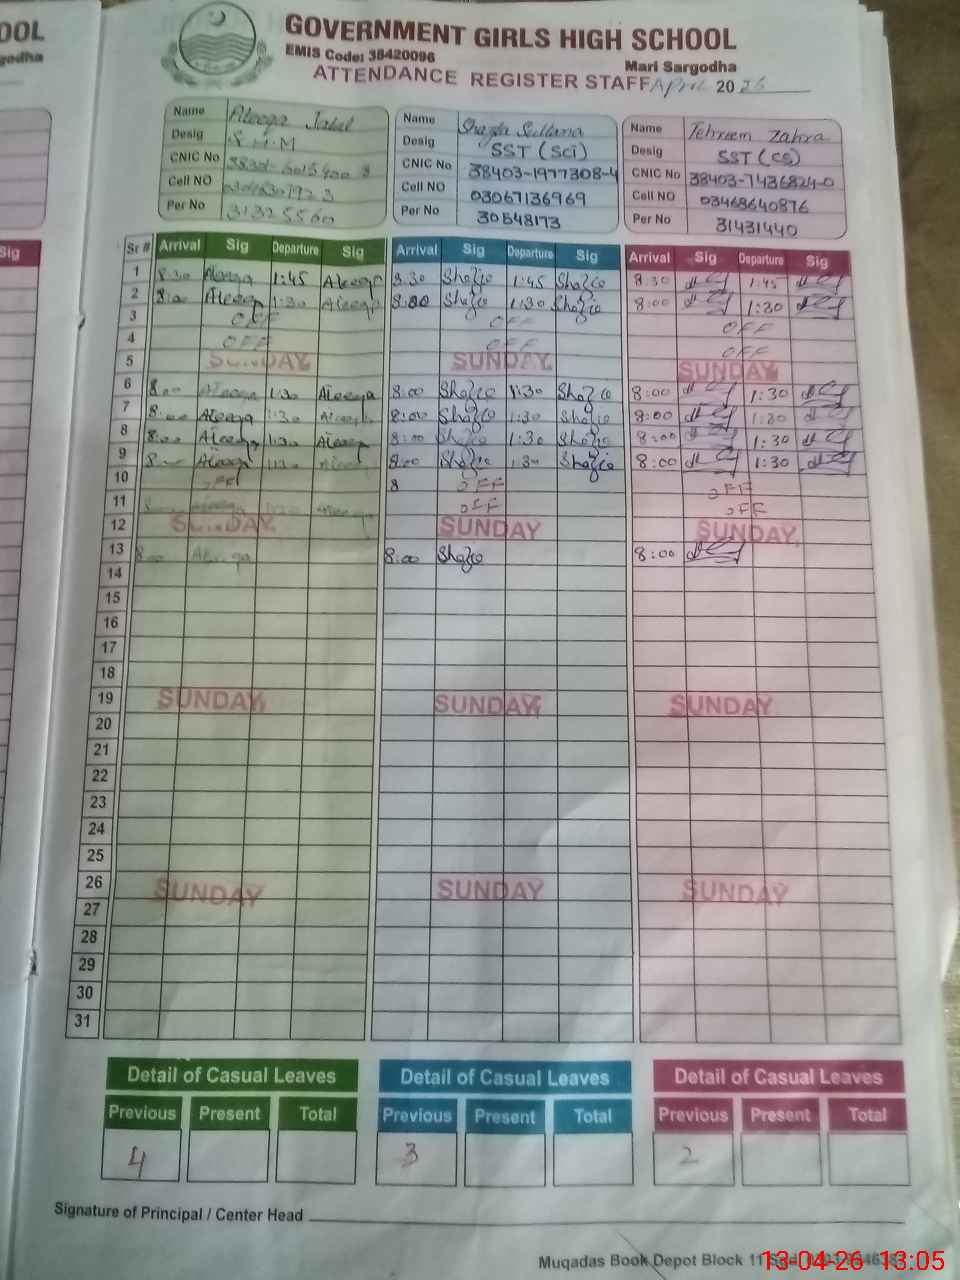 OOL
rgodha
Sig
GOVERNMENT GIRLS HIGH SCHOOL
EMIS Code: 38420096
Mari Sargodha
ATTENDANCE REGISTER STAFF April 2026
Name Aleeqa Jalal
Desig S.H.M
CNIC No
Cell NO
Per No
Name Shazia Sultana
Desig SST (Sci)
CNIC No 38403-1977308-4
Cell NO 03067136969
Per No 30548173
Name Tehreem Zahra
Desig SST (CS)
CNIC No 38403-7436824-0
Cell NO 03468640876
Per No 31431440
Sr # Arrival Sig Departure Sig Arrival Sig Departure Sig Arrival Sig Departure Sig
1 8:30 Aleeqa 1:45 Aleeqa 8:30 Shazia 1:45 Shazia 8:30 1:45
2 8:00 Aleeqa 1:30 Aleeqa 8:00 Shazia 1:30 Shazia 8:00 1:30
3 OFF OFF OFF
4 OFF OFF OFF
5 SUNDAY SUNDAY SUNDAY
6 8:00 Aleeqa 1:30 Aleeqa 8:00 Shazia 1:30 Shazia 8:00 1:30
7 8:00 Aleeqa 1:30 Aleeqa 8:00 Shazia 1:30 Shazia 8:00 1:30
8 8:00 Aleeqa 1:30 Aleeqa 8:00 Shazia 1:30 Shazia 8:00 1:30
9 8:00 Aleeqa 1:30 Aleeqa 8:00 Shazia 1:30 Shazia 8:00 1:30
10 OFF 8 OFF OFF
11 Aleeqa OFF OFF
12 SUNDAY SUNDAY SUNDAY
13 8:00 Aleeqa 8:00 Shazia 8:00
14
15
16
17
18
19 SUNDAY SUNDAY SUNDAY
20
21
22
23
24
25
26 SUNDAY SUNDAY SUNDAY
27
28
29
30
31
Detail of Casual Leaves Detail of Casual Leaves Detail of Casual Leaves
Previous Present Total Previous Present Total Previous Present Total
4 3 2
Signature of Principal / Center Head
Muqadas Book Depot Block 11
13-04-26 13:05